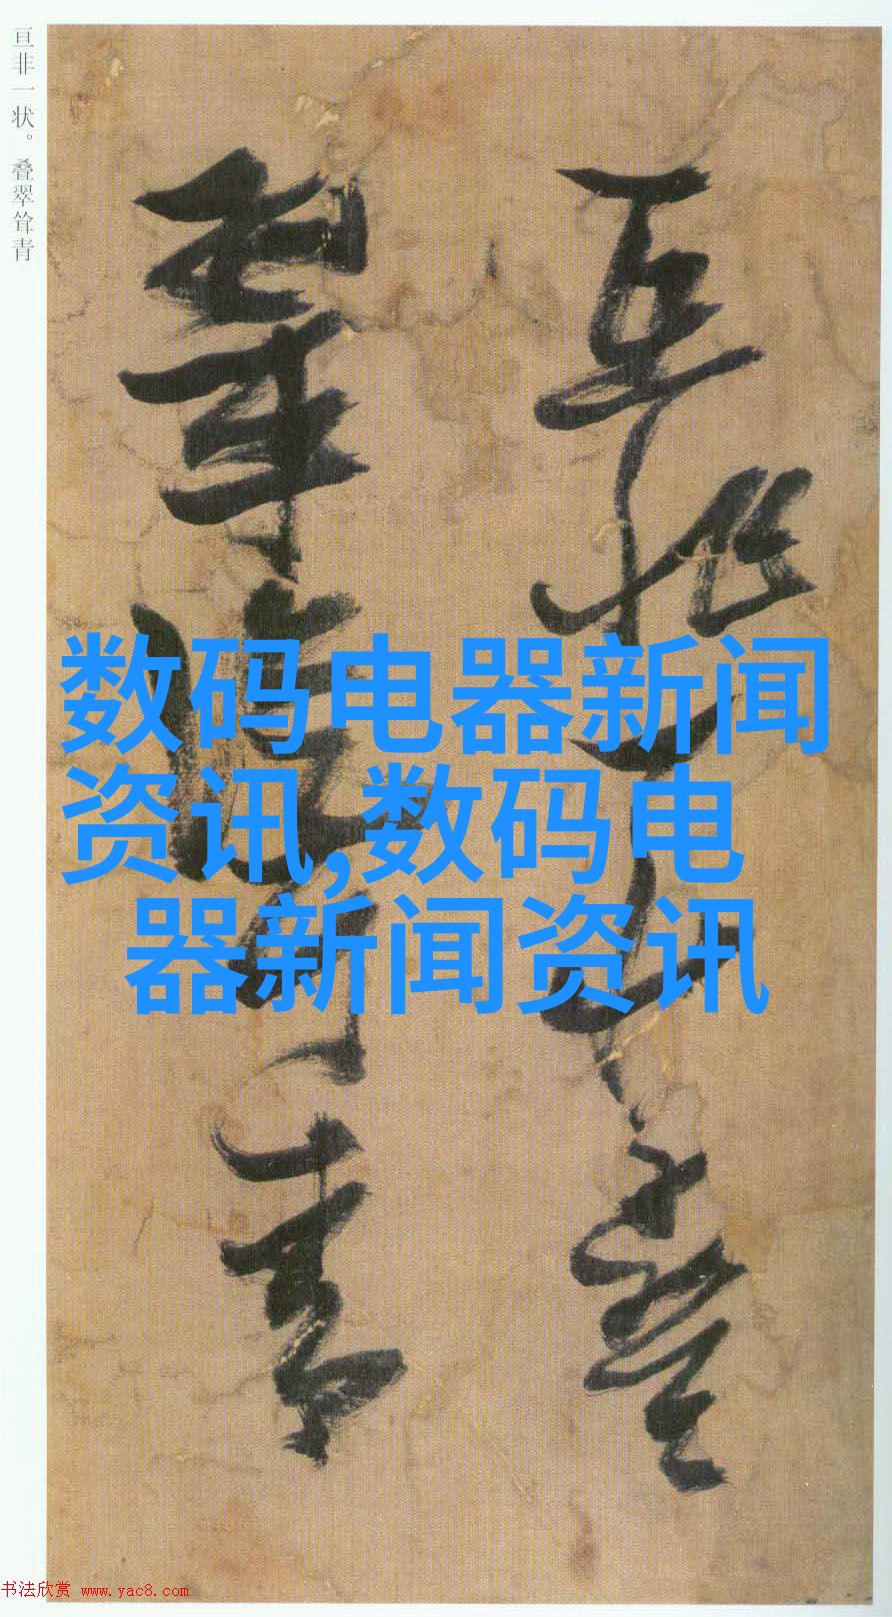 亘非一状。叠翠耸青
亘非一状叠
翠耸青
数码电器新闻
资讯,数码电
器新闻资讯
书法欣赏 www.yac8.com